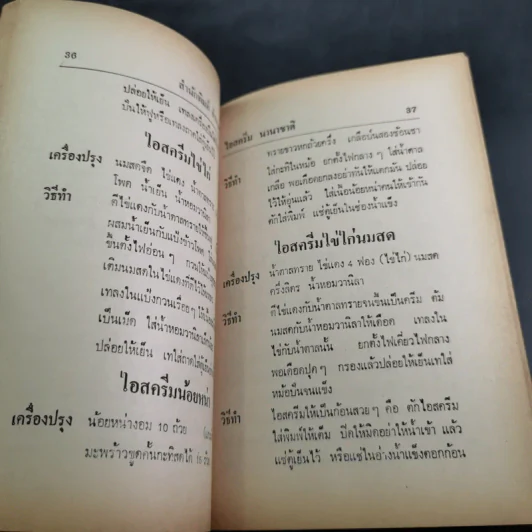 36
สำนักพิมพ์
ปล่อยให้เย็น เทลงเครื่อง
ปั่นให้ฟูหรือเทลงถาด
ไอสครีมไข่ไก่
เครื่องปรุง นมสดจืด ไข่แดง น้ำตาล
โพด น้ำเย็น น้ำหอมวานิลา
วิธีทำ ตีไข่แดงกับน้ำตาลทราย
ผสมน้ำเย็นกับแป้งข้าวโพด
ขึ้นตั้งไฟอ่อนๆ กวน
เติมนมสดในไข่แดงที่ตีไว้
เทลงในแป้งกวนเรื่อยๆ
เป็นเม็ด ใส่น้ำหอมวานิลา
ปล่อยให้เย็น เทใส่ถาด
ไอสครีมน้อยหน่า
เครื่องปรุง น้อยหน่างอม 10 ถ้วย
มะพร้าวขูดคั้นกะทิสดได้ 16 ถ้วย
37
ไอสครีม นานาชาติ
ทรายขาวหกถ้วยครึ่ง เกลือป่นสองช้อนชา
วิธีทำ ใส่กะทิในหม้อ ยกตั้งไฟกลางๆ ใส่น้ำตาล
เกลือ พอเดือดยกลงอย่าทันให้แตกมัน ปล่อย
ไว้ให้อุ่นแล้ว ใส่เนื้อน้อยหน่าคนให้เข้ากัน
ตักใส่พิมพ์ แช่ตู้เย็นในช่องน้ำแข็ง
ไอสครีมไข่ไก่นมสด
เครื่องปรุง น้ำตาลทราย ไข่แดง 4 ฟอง (ไข่ไก่) นมสด
ครึ่งลิตร น้ำหอมวานิลา
วิธีทำ ตีไข่แดงกับน้ำตาลทรายจนขึ้นเป็นครีม ต้ม
นมสดกับน้ำหอมวานิลาให้เดือด เทลงใน
ไข่กับน้ำตาลนั้น ยกตั้งไฟเคี่ยวไฟกลาง
พอเดือดปุดๆ กรองแล้วปล่อยให้เย็นเทใส่
หม้อปั่นจนแข็ง
วิธีทำ ไอสครีมให้เป็นก้อนสวยๆ คือ ตักไอสครีม
ใส่พิมพ์ให้เต็ม ปิดให้มิดอย่าให้น้ำเข้า แล้ว
แช่ตู้เย็นไว้ หรือแช่ในอ่างน้ำแข็งตอกก้อน